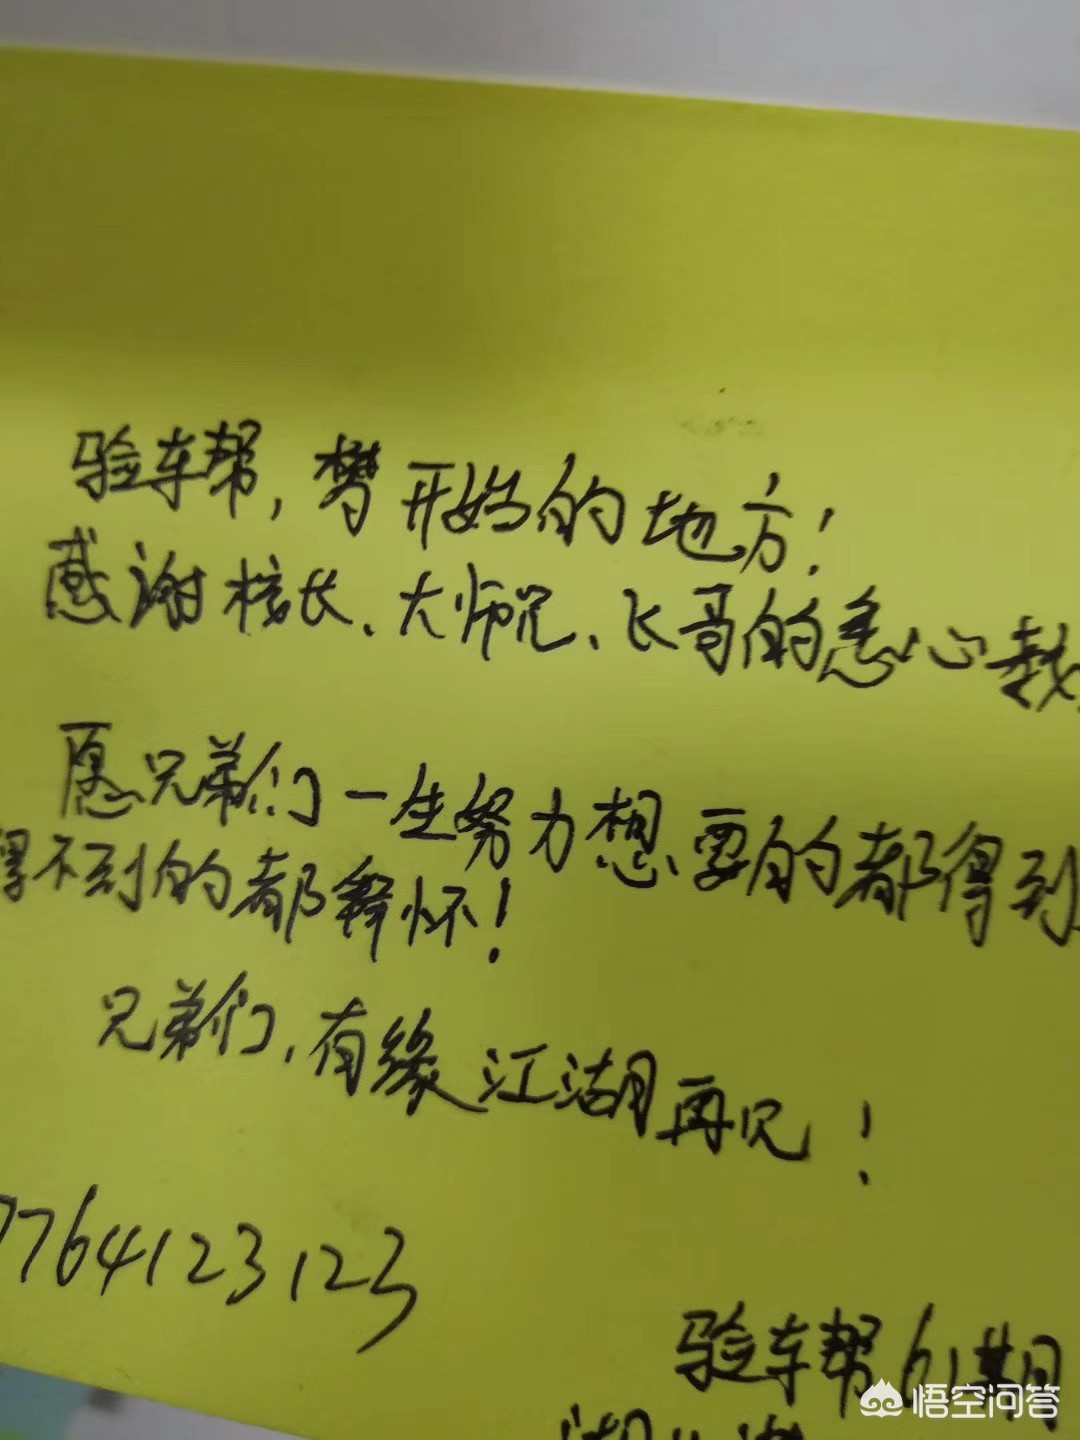 验车帮,梦开始的地方!
感谢校长、大师兄、飞哥的悉心栽
愿兄弟们一生努力想要的都得到
得不到的都释怀!
兄弟们,有缘江湖再见!
7764123123
验车帮61期
湖北
悟空问答